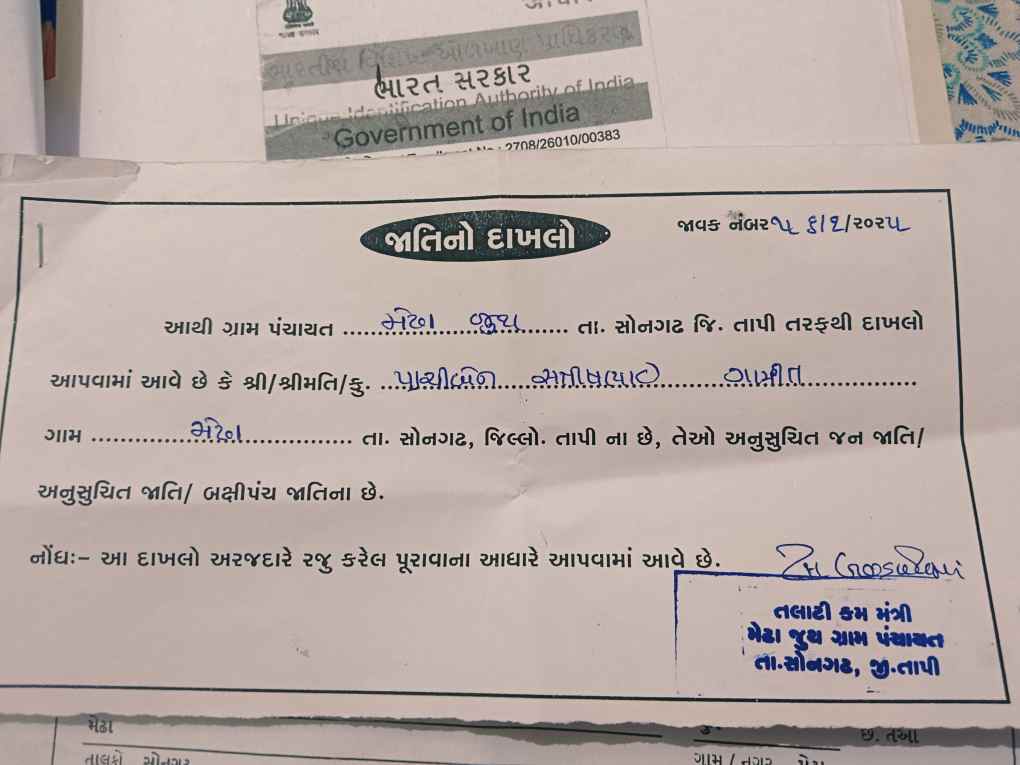 ભારત સરકાર
Unique Identification Authority of India
Government of India
2708/26010/00383
જાતિનો દાખલો
જાવક નંબર ૫ ૬/૧/૨૦૨૫
આથી ગ્રામ પંચાયત ....મેઢા જુથ.... તા. સોનગઢ જિ. તાપી તરફથી દાખલો
આપવામાં આવે છે કે શ્રી/શ્રીમતિ/કુ. ...પાચીબેન સતીષભાઈ ગામીત...
ગામ ....મેઢા.... તા. સોનગઢ, જિલ્લો. તાપી ના છે, તેઓ અનુસુચિત જન જાતિ/
અનુસુચિત જાતિ/ બક્ષીપંચ જાતિના છે.
નોંધઃ- આ દાખલો અરજદારે રજુ કરેલ પૂરાવાના આધારે આપવામાં આવે છે.
તલાટી કમ મંત્રી
મેઢા જુથ ગ્રામ પંચાયત
તા.સોનગઢ, જી.તાપી
મેઢા
છે. તેઓ
તાલુકો સોનગઢ
ગામ / નગર